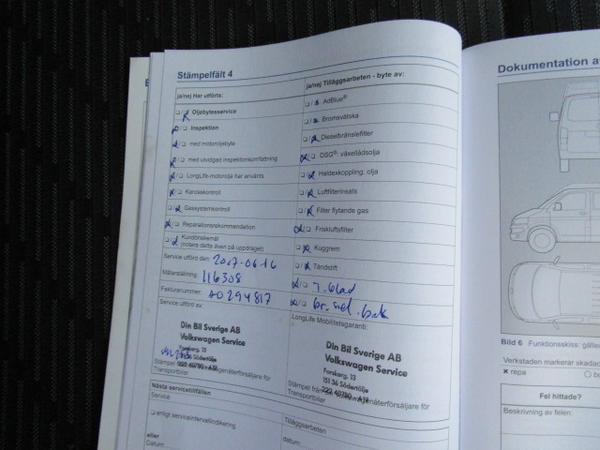 Stämpelfält 4
Dokumentation a
ja/nej Har utförts:
ja/nej Tilläggsarbeten - byte av:
Oljebytesservice
Inspektion
med motoroljebyte
med utvidgad inspektionsomfattning
LongLife-motorolja har använts
Karosskontroll
Gassystemkontroll
Reparationsrekommendation
Kundönskemål
(notera detta även på uppdraget)
AdBlue®
Bromsvätska
Dieselbränslefilter
DSG®: växellådsolja
Haldexkoppling: olja
Luftfilterinsats
Filter flytande gas
Friskluftsfilter
Kuggrem
Tändstift
T.blad
br.vet.bak
Service utförd den: 2017-06-16
Mätarställning: 116308
Fakturanummer: 40294817
Service utförd av:
LongLife Mobilitetsgaranti:
Din Bil Sverige AB
Volkswagen Service
Forskarg. 13
151 36 Södertälje
Din Bil Sverige AB
Volkswagen Service
Forskarg. 13
151 36 Södertälje
Transportbilar
Transportbilar
Nästa servicetillfällen
Service
enligt serviceintervallindikering
eller
Datum:
Tilläggsarbeten
datum:
Bild 6 Funktionsskiss: gäller
Verkstaden markerar skadas
x repa
Fel hittade?
Beskrivning av felen: